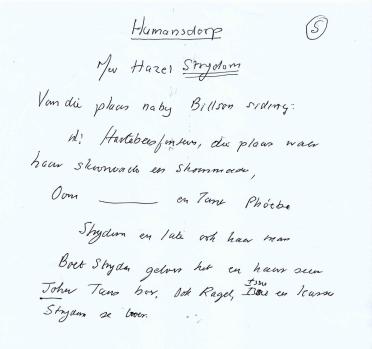 Humansdorp
5
Mev Hazel Strydom
Van die plaas naby Billson siding:
nl: Hartebeesfontein, die plaas waar
haar skoonvader en skoonmoeder,
Oom ______ en Tant Phoébe
Strydom en later ook haar man
Boet Strydom geboer het en haar seun
John Tans boer. Ook Ragel, en
Strydom se